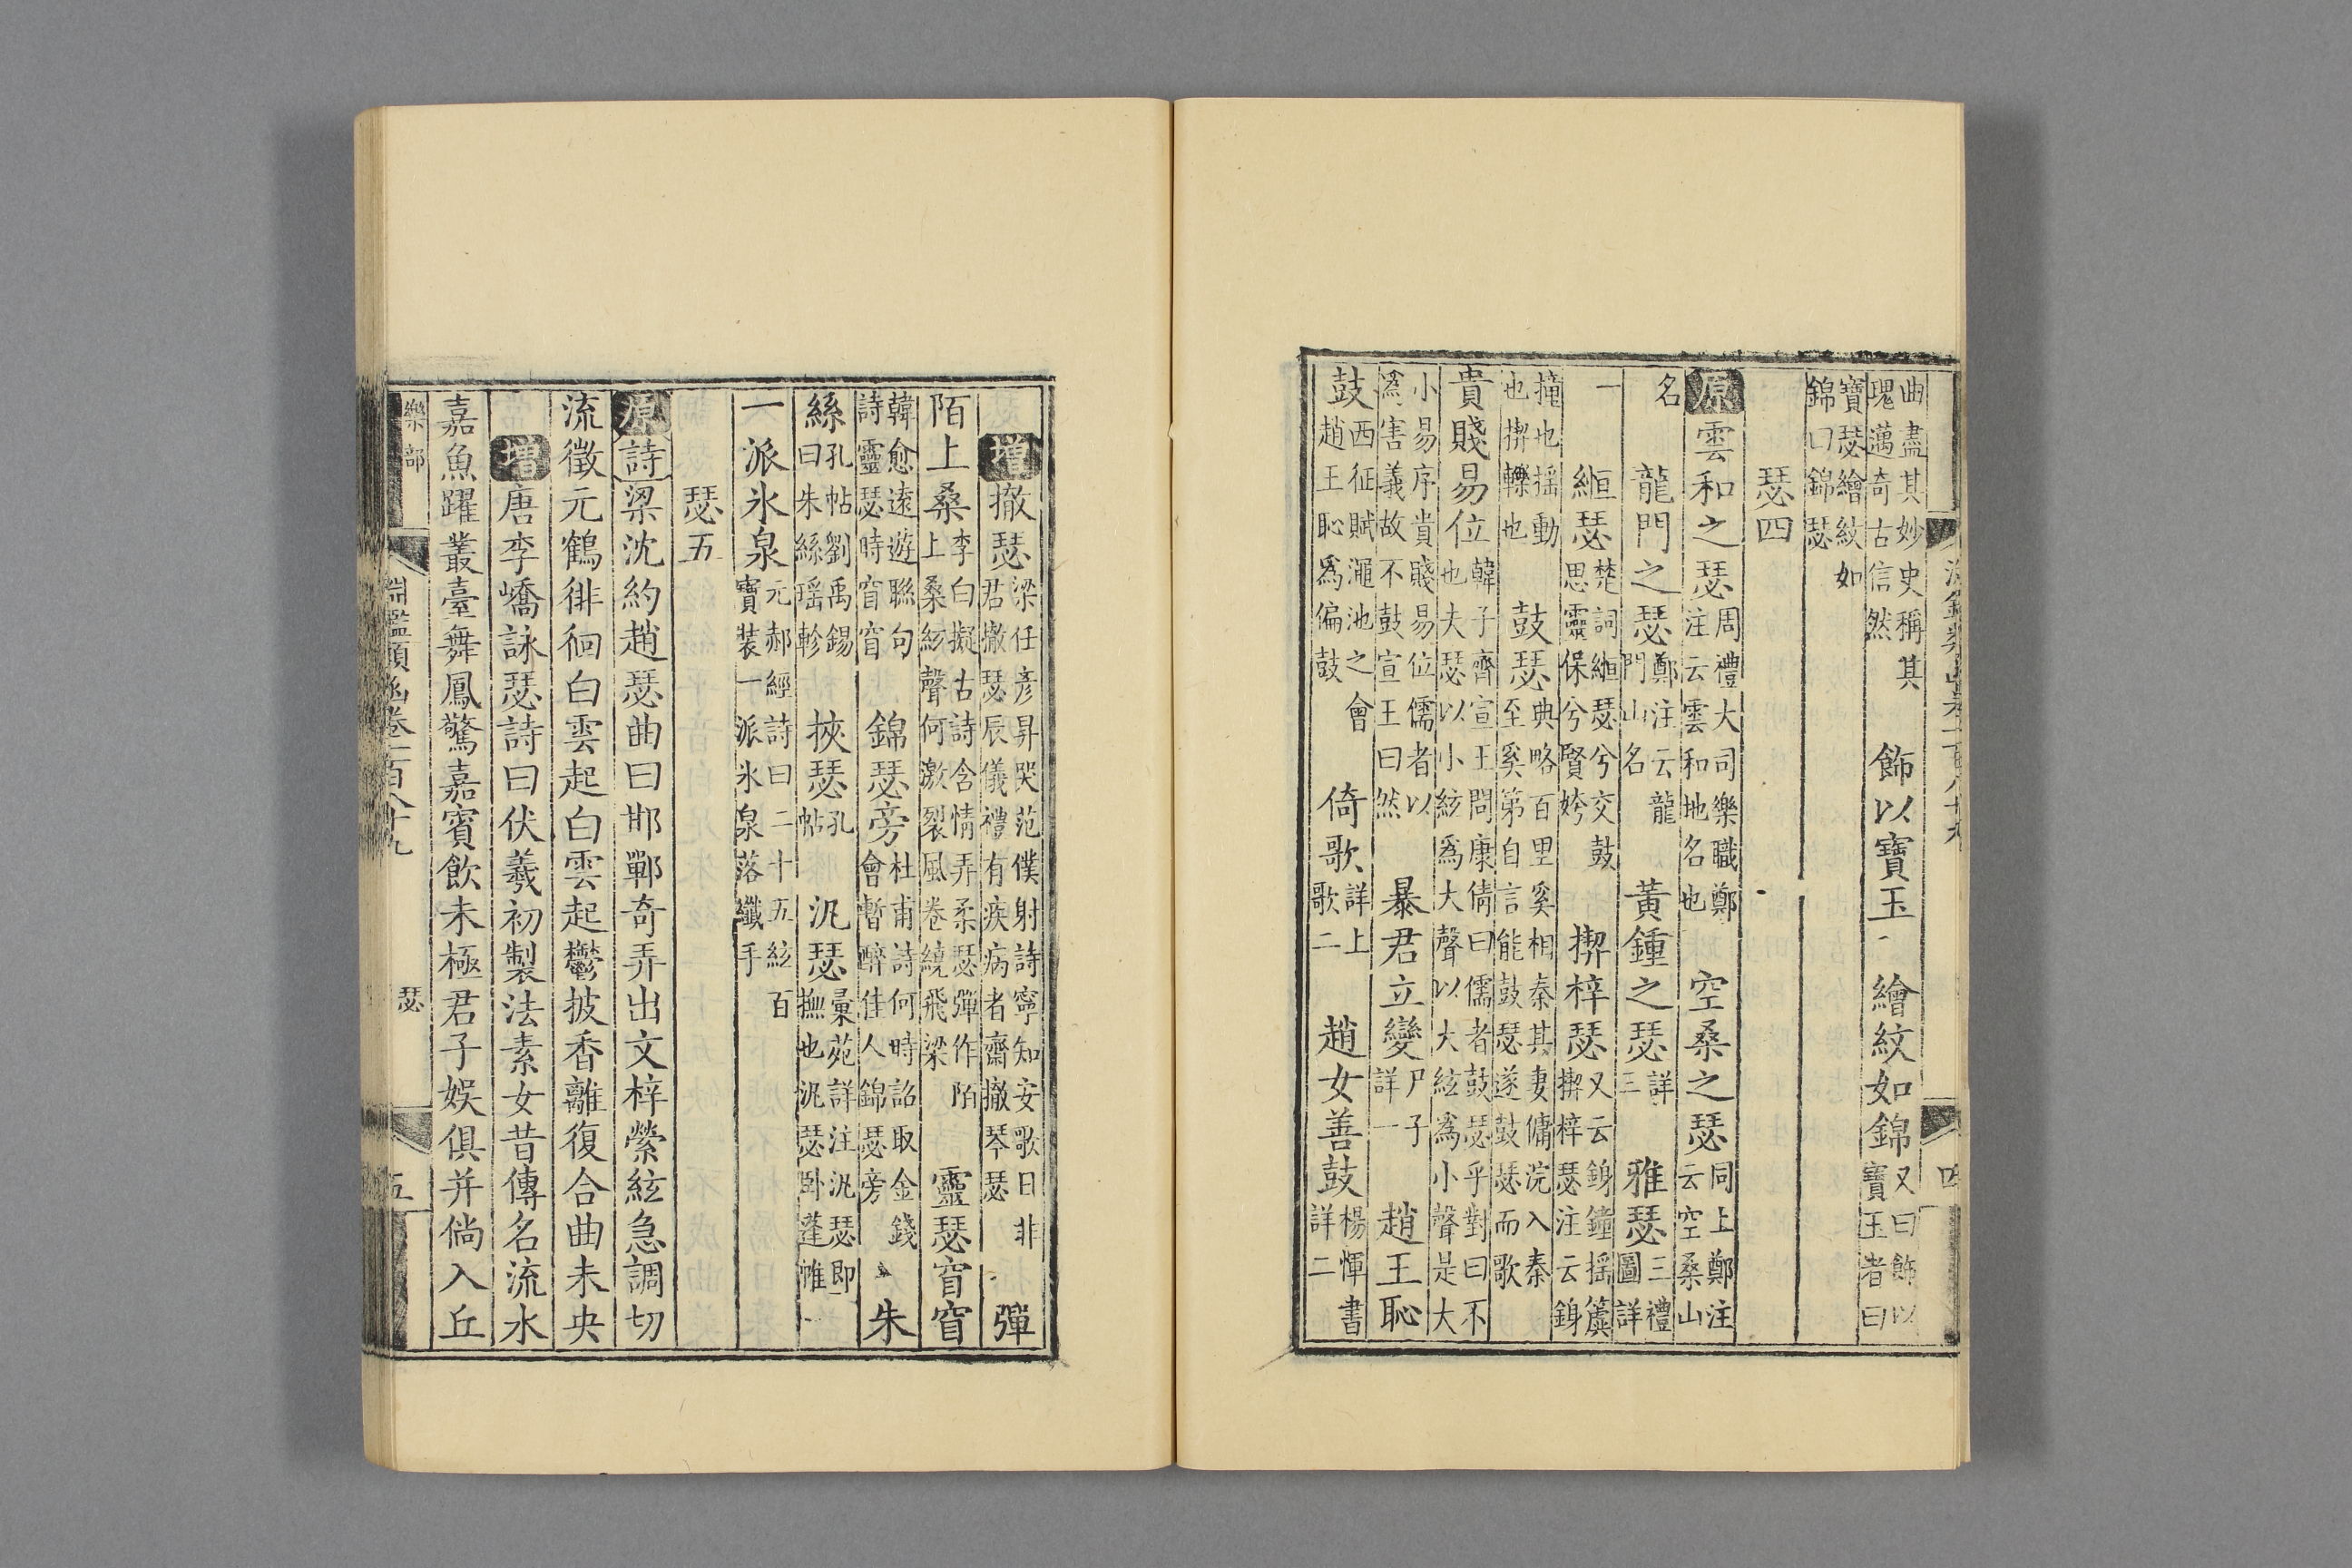 曲盡其妙史稱其瑰邁奇古信然 飾以寶玉 繪紋如錦 又曰飾以寶玉者曰
寶瑟繪紋如錦曰錦瑟
瑟四
原 雲和之瑟 周禮大司樂職鄭注云雲和地名也 空桑之瑟 同上鄭注云空桑山
名 龍門之瑟 鄭注云龍門山名 黃鍾之瑟 詳三 雅瑟 三禮圖詳
一 縆瑟 楚詞縆瑟兮交鼓思靈保兮賢姱 揳梓瑟 又云鏗鐘搖簴揳梓瑟注云鏗
撞也搖動也揳轢也 鼓瑟 典略百里奚相秦其妻傭浣入秦至奚第自言能鼓瑟遂鼓瑟而歌
貴賤易位 韓子齊宣王問康倩曰儒者鼓瑟乎對曰不也夫瑟以小絃爲大聲以大絃爲小聲是大
小易序貴賤易位儒者以爲害義故不鼓宣王曰然 暴君立變 尸子詳一 趙王恥
鼓 西征賦澠池之會趙王恥爲偏鼓 倚歌 詳上歌二 趙女善鼓 楊惲書詳二
增 撤瑟 梁任彥昇哭范僕射詩寧知安歌日非君撤瑟辰儀禮有疾病者齋撤琴瑟 彈
陌上桑 李白擬古詩含情弄柔瑟彈作陌上桑絃聲何激裂風卷繞飛梁 靈瑟窅窅
韓愈遠遊聯句詩靈瑟時窅窅 錦瑟旁 杜甫詩何時詔取金錢會暫醉佳人錦瑟旁 朱
絲 孔帖劉禹錫曰朱絲瑶軫 挾瑟 孔帖 汎瑟 彙苑詳注汎瑟即撫也汎瑟卧蓬帷
一派氷泉 元郝經詩曰二十五絃百寶裝一派氷泉落纖手
瑟五
原 詩 梁沈約趙瑟曲曰邯鄲奇弄出文梓縈絃急調切
流徵元鶴徘徊白雲起白雲起鬱披香離復合曲未央
增 唐李嶠詠瑟詩曰伏羲初製法素女昔傳名流水
嘉魚躍叢臺舞鳳驚嘉賓飲未極君子娛俱并倘入丘
樂部 淵鑑類函卷一百八十九 瑟 五